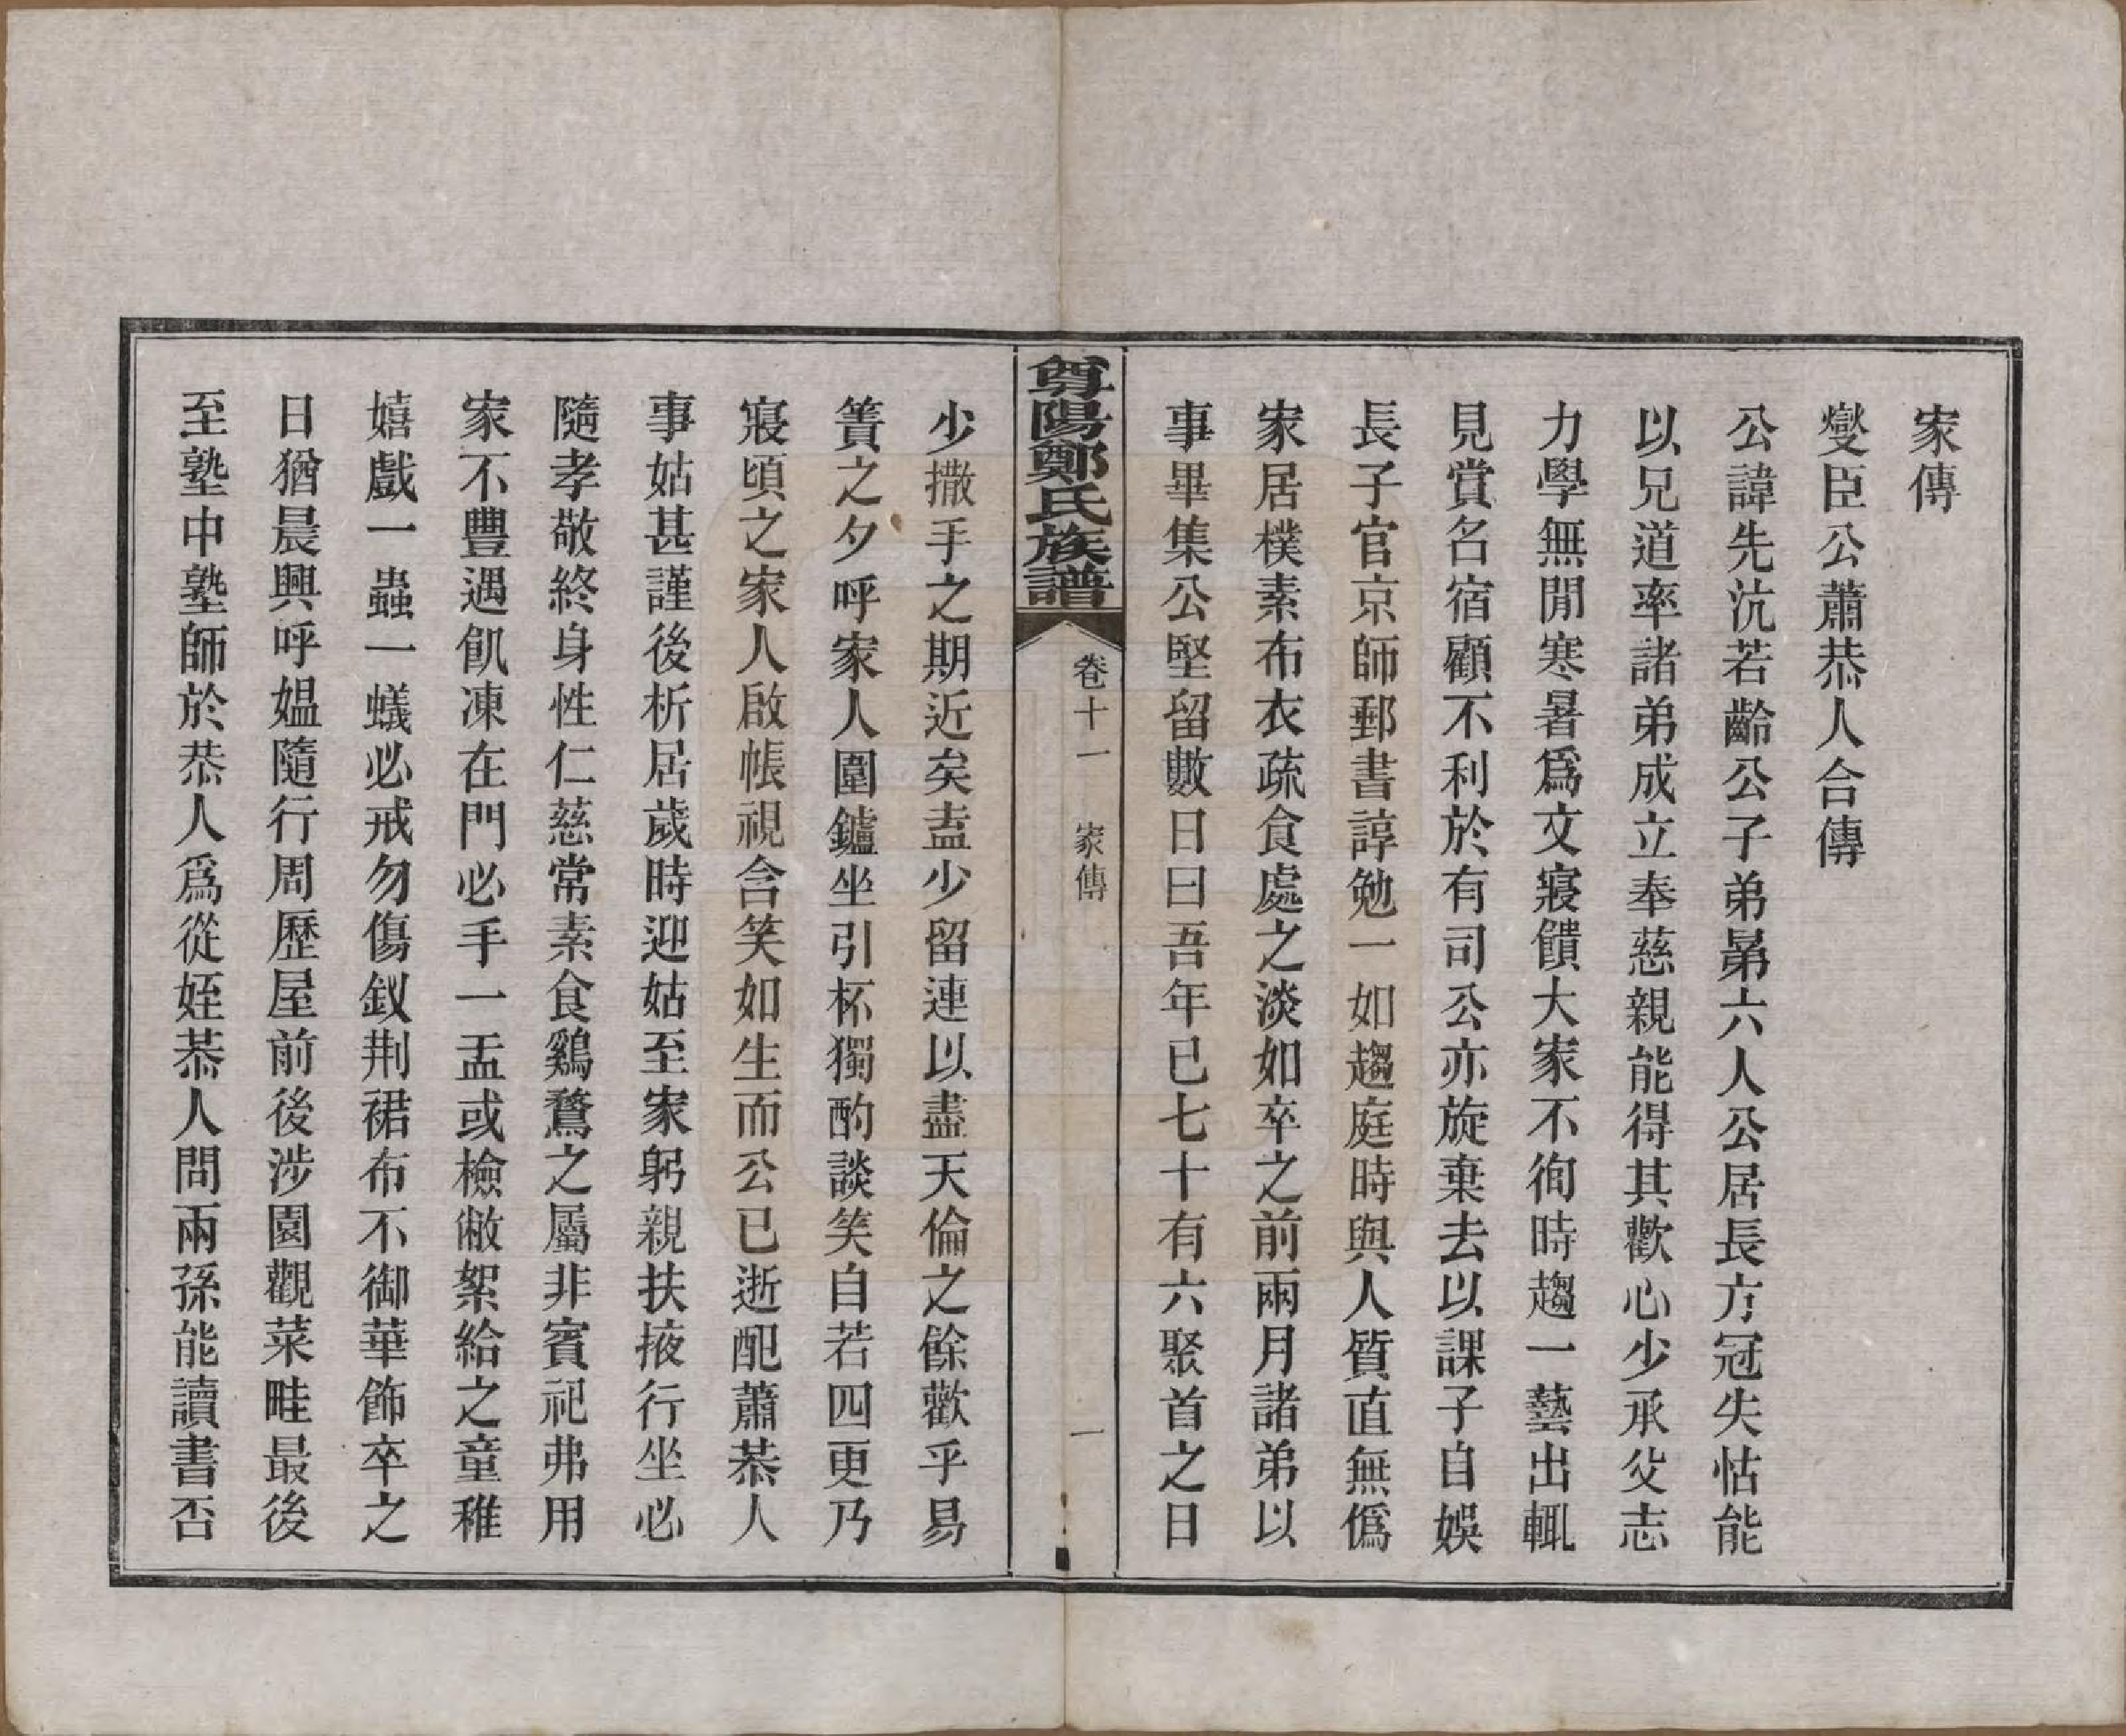 家傳
燮臣公蕭恭人合傳
公諱先沆若齡公子弟苐六人公居長方冠失怙能
以兄道率諸弟成立奉慈親能得其歡心少承父志
力學無閒寒暑爲文寢饋大家不徇時趨一藝出輒
見賞名宿顧不利於有司公亦旋棄去以課子自娛
長子官京師郵書諄勉一如趨庭時與人質直無僞
家居樸素布衣疏食處之淡如卒之前兩月諸弟以
事畢集公堅留數日曰吾年已七十有六聚首之日
尊陽鄭氏族譜
卷十一
家傳
一
少撒手之期近矣盍少留連以盡天倫之餘歡乎易
簀之夕呼家人圍鑪坐引杯獨酌談笑自若四更乃
寢頃之家人啟帳視含笑如生而公已逝配蕭恭人
事姑甚謹後析居歲時迎姑至家躬親扶掖行坐必
隨孝敬終身性仁慈常素食鷄鶩之屬非賓祀弗用
家不豐遇飢凍在門必手一盂或檢敝絮給之童稚
嬉戲一蟲一蟻必戒勿傷釵荆裙布不御華飾卒之
日猶晨興呼媼隨行周歷屋前後涉園觀菜畦最後
至塾中塾師於恭人爲從姪恭人問兩孫能讀書否